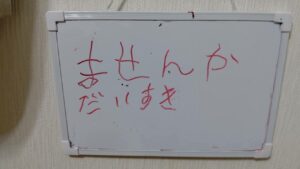 ませんか
だいすき